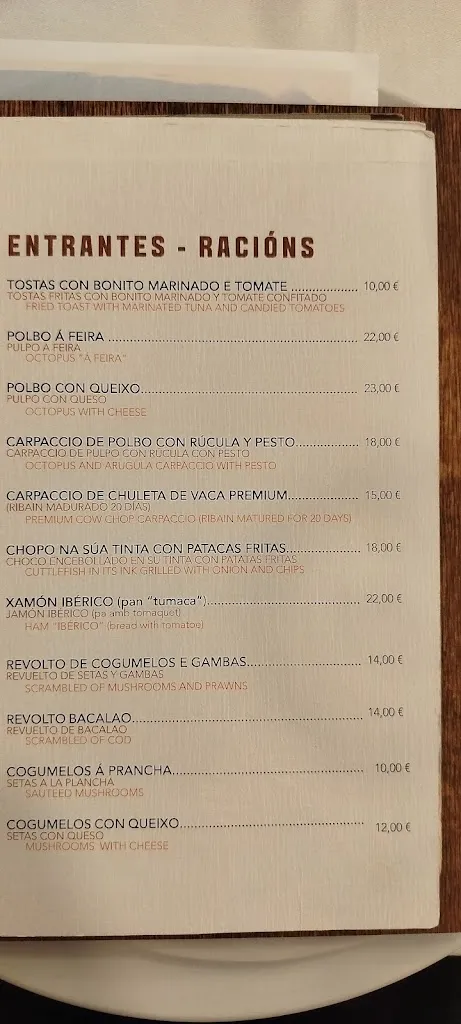 ENTRANTES - RACIÓNS
TOSTAS CON BONITO MARINADO E TOMATE .................... 10,00 €
TOSTAS FRITAS CON BONITO MARINADO Y TOMATE CONFITADO
FRIED TOAST WITH MARINATED TUNA AND CANDIED TOMATOES
POLBO Á FEIRA .................... 22,00 €
PULPO A FEIRA
OCTOPUS "Á FEIRA"
POLBO CON QUEIXO.................... 23,00 €
PULPO CON QUESO
OCTOPUS WITH CHEESE
CARPACCIO DE POLBO CON RÚCULA Y PESTO.................... 18,00 €
CARPACCIO DE PULPO CON RÚCULA CON PESTO
OCTOPUS AND ARUGULA CARPACCIO WITH PESTO
CARPACCIO DE CHULETA DE VACA PREMIUM.................... 15,00 €
(RIBAIN MADURADO 20 DÍAS)
PREMIUM COW CHOP CARPACCIO (RIBAIN MATURED FOR 20 DAYS)
CHOPO NA SÚA TINTA CON PATACAS FRITAS.................... 18,00 €
CHOCO ENCEBOLLADO EN SU TINTA CON PATATAS FRITAS
CUTTLEFISH IN ITS INK GRILLED WITH ONION AND CHIPS
XAMÓN IBÉRICO (pan "tumaca").................... 22,00 €
JAMÓN IBÉRICO (pa amb tomaquet)
HAM "IBÉRICO" (bread with tomatoe)
REVOLTO DE COGUMELOS E GAMBAS.................... 14,00 €
REVUELTO DE SETAS Y GAMBAS
SCRAMBLED OF MUSHROOMS AND PRAWNS
REVOLTO BACALAO.................... 14,00 €
REVUELTO DE BACALAO
SCRAMBLED OF COD
COGUMELOS Á PRANCHA.................... 10,00 €
SETAS A LA PLANCHA
SAUTEED MUSHROOMS
COGUMELOS CON QUEIXO.................... 12,00 €
SETAS CON QUESO
MUSHROOMS WITH CHEESE